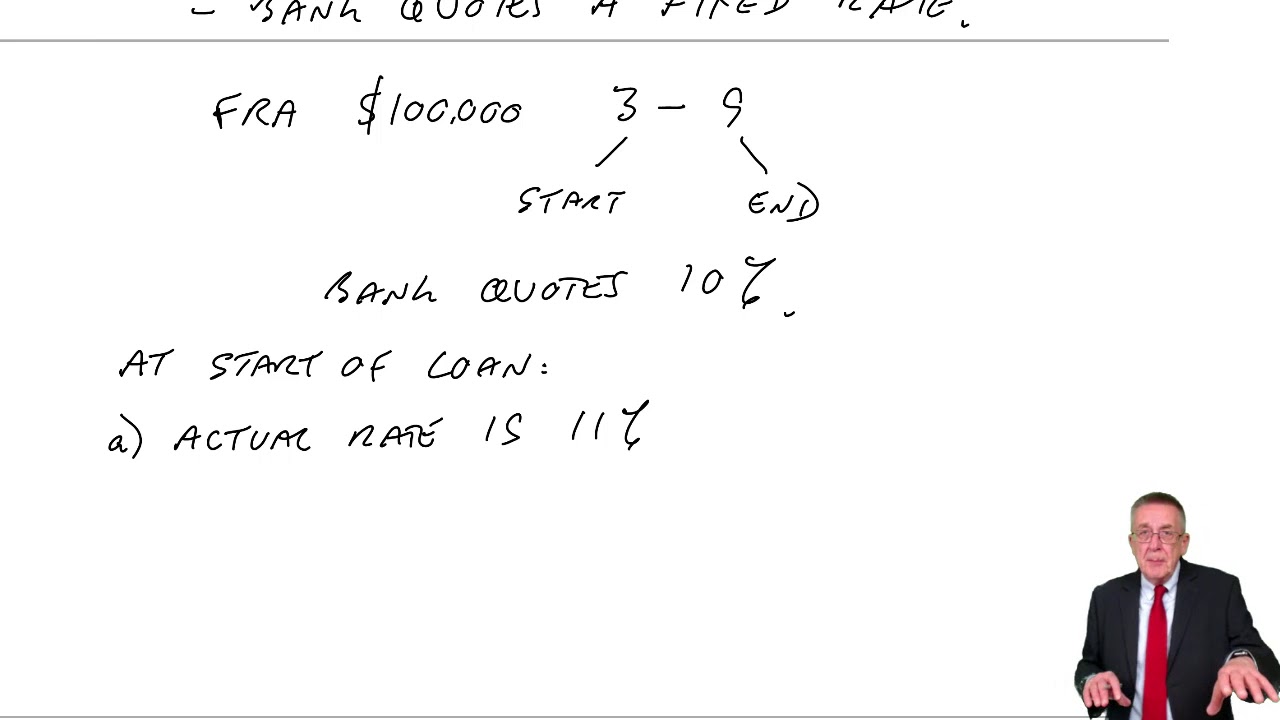 - BANK QUOTES A FIXED RATE.
FRA $100,000 3 - 9
START END
BANK QUOTES 10%.
AT START OF LOAN:
a) ACTUAL RATE IS 11%